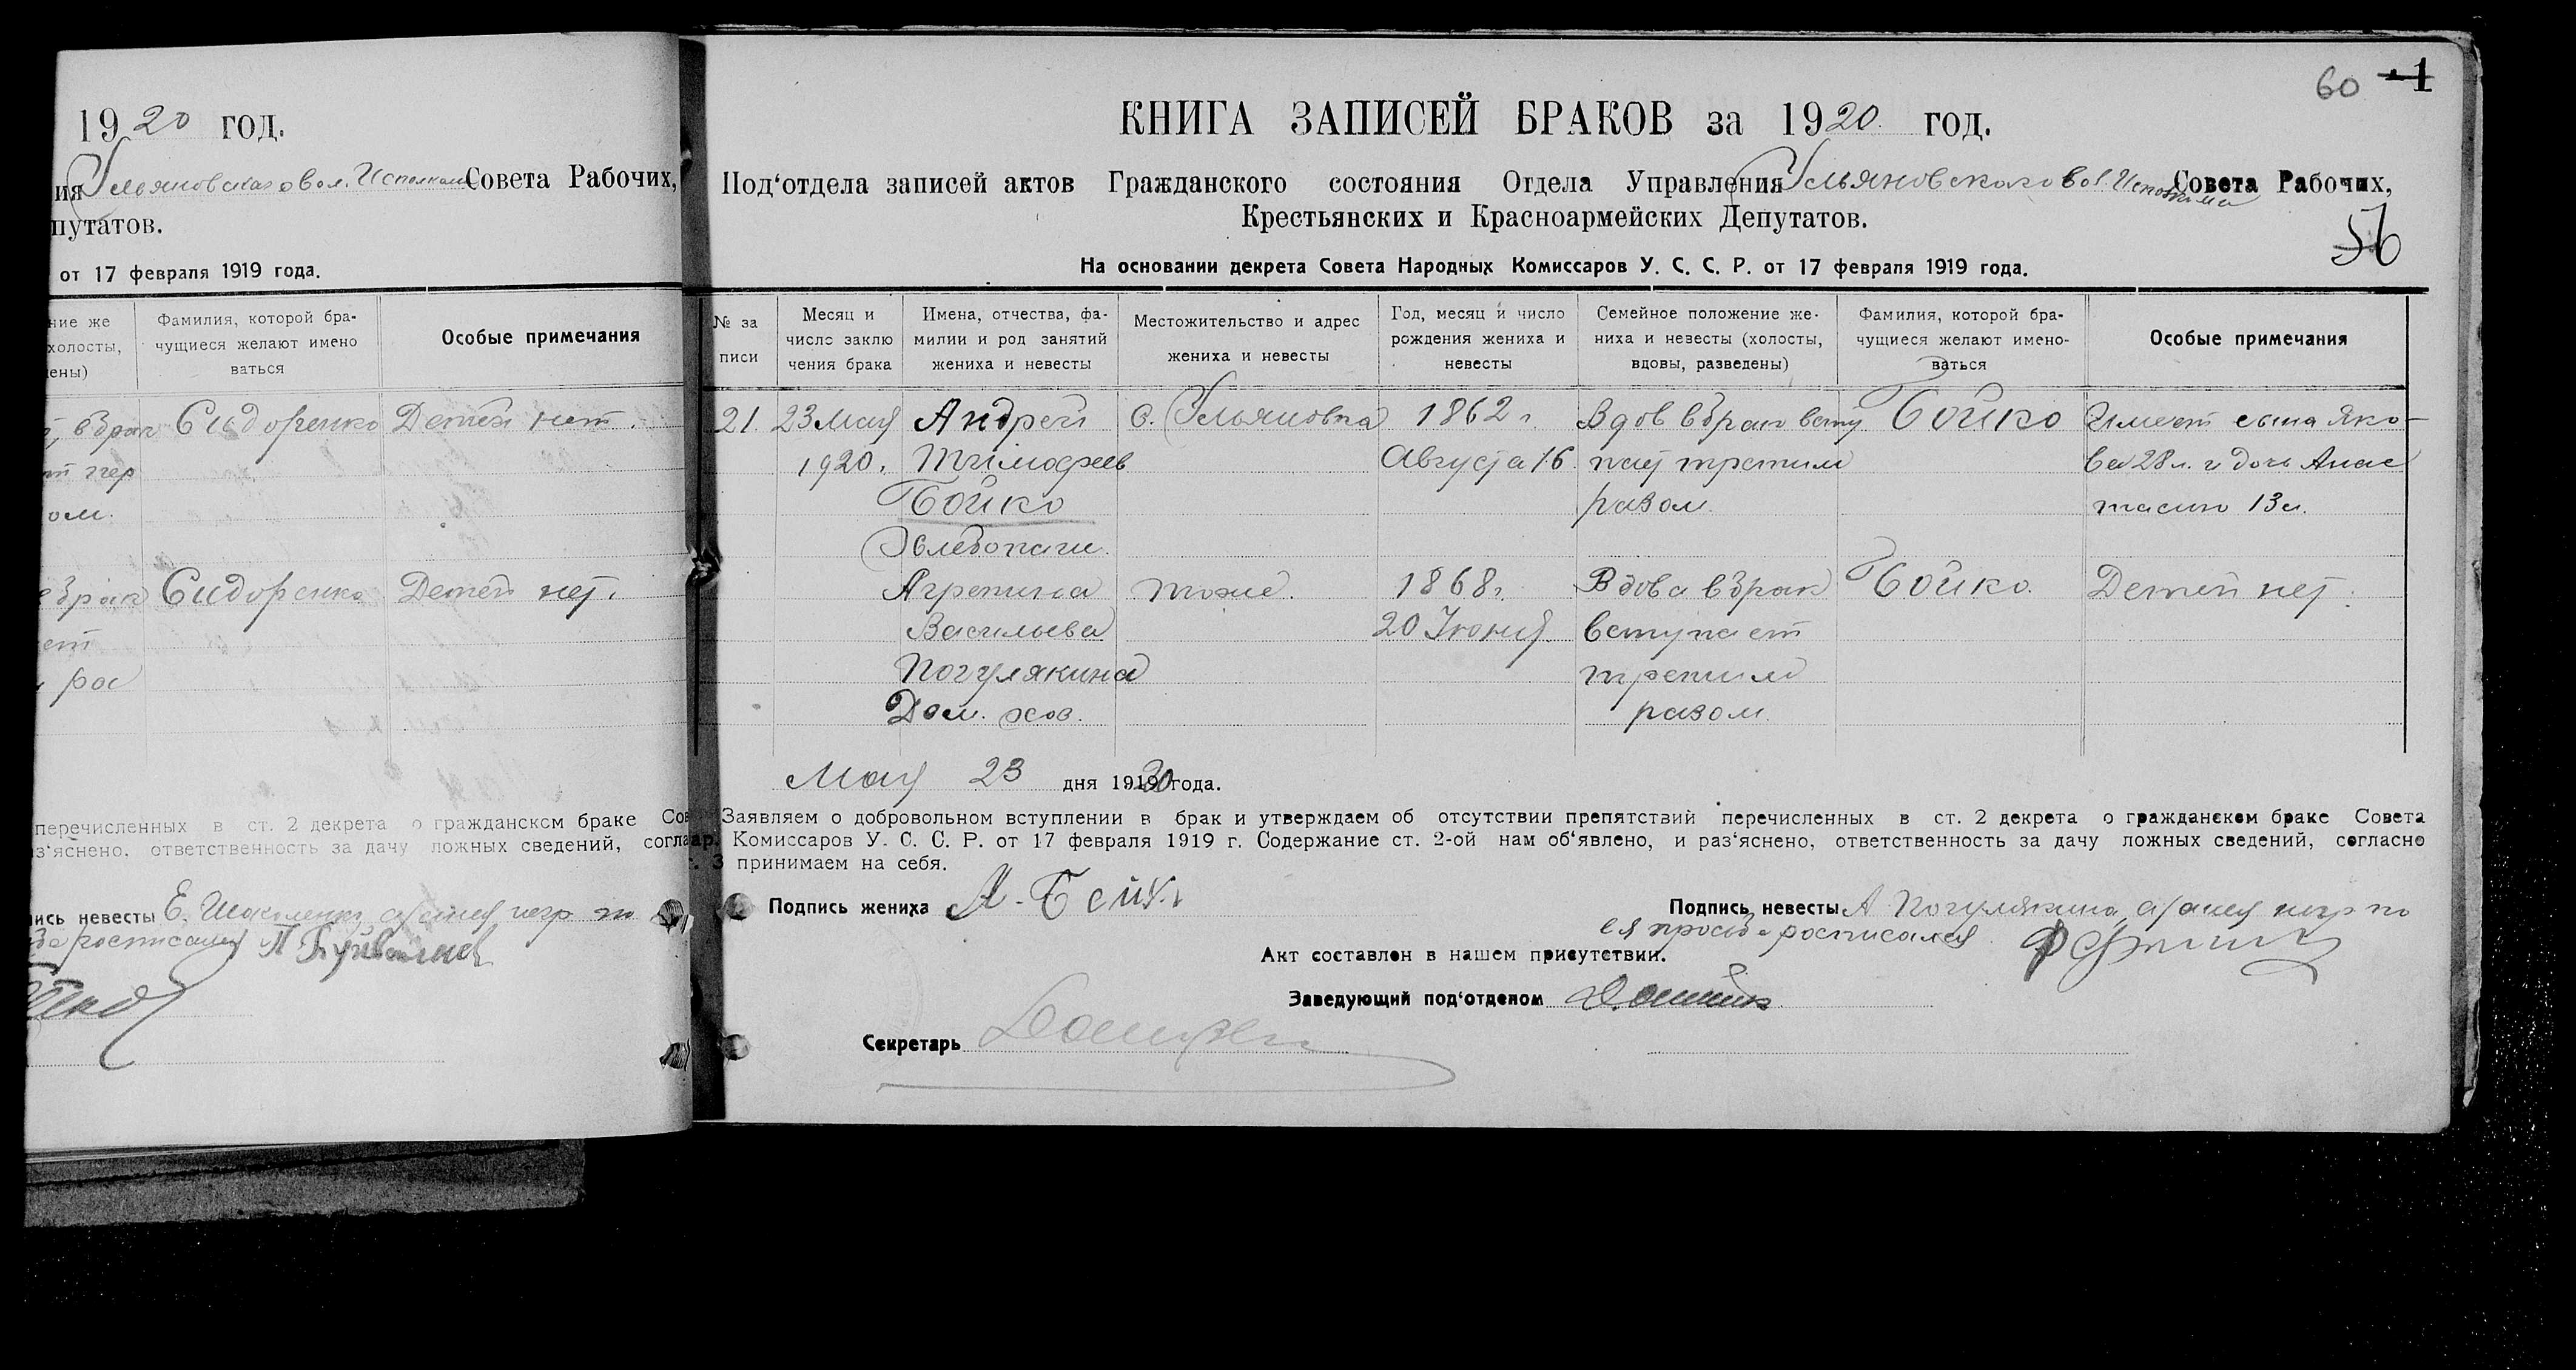 1920 год.
ия Ульяновского вол. Исполкома Совета Рабочих,
путатов.
от 17 февраля 1919 года.
ние же
холосты,
ены)
Фамилия, которой бра-
чущиеся желают имено
ваться
Особые примечания
брак Сидоренко Детей нет.
пер
ом.
брак Сидоренко Детей нет.
ет
ра
перечисленных в ст. 2 декрета о гражданском браке Сов
з'яснено, ответственность за дачу ложных сведений, согла
ись невесты Е.
росписался
60 1
КНИГА ЗАПИСЕЙ БРАКОВ за 1920 год.
Под'отдела записей актов Гражданского состояния Отдела Управления Ульяновского вол. Исполкома Совета Рабочих,
Крестьянских и Красноармейских Депутатов.
56
На основании декрета Совета Народных Комиссаров У. С. С. Р. от 17 февраля 1919 года.
№ за
писи
Месяц и
число заклю
чения брака
Имена, отчества, фа-
милии и род занятий
жениха и невесты
Местожительство и адрес
жениха и невесты
Год, месяц и число
рождения жениха и
невесты
Семейное положение же-
ниха и невесты (холосты,
вдовы, разведены)
Фамилия, которой бра-
чущиеся желают имено-
ваться
Особые примечания
21. 23 Мая Андрей с. Ульяновка 1862 г. Вдов в брак всту Бойко Имеет сына Яко-
1920. Тимофеев Августа 16 пает третим ва 28 л. и дочь Анас
Бойко разом тасию 13 л.
Хлебопаш.
Агрепина тоже. 1868 г. Вдова в брак Бойко. Детей нет.
Васильева 20 Июня вступает
Погулякина третим
Дом. хоз. разом.
Мая 23 дня 191920 года.
Заявляем о добровольном вступлении в брак и утверждаем об отсутствии препятствий перечисленных в ст. 2 декрета о гражданском браке Совета
ар. Комиссаров У. С. С. Р. от 17 февраля 1919 г. Содержание ст. 2-ой нам об'явлено, и раз'яснено, ответственность за дачу ложных сведений, согласно
. 3 принимаем на себя.
Подпись жениха А. Бойко
Подпись невесты А Погулякина, а за нея негр по
ея просьбе росписался
Акт составлен в нашем присутствии.
Заведующий под'отделом
Секретарь